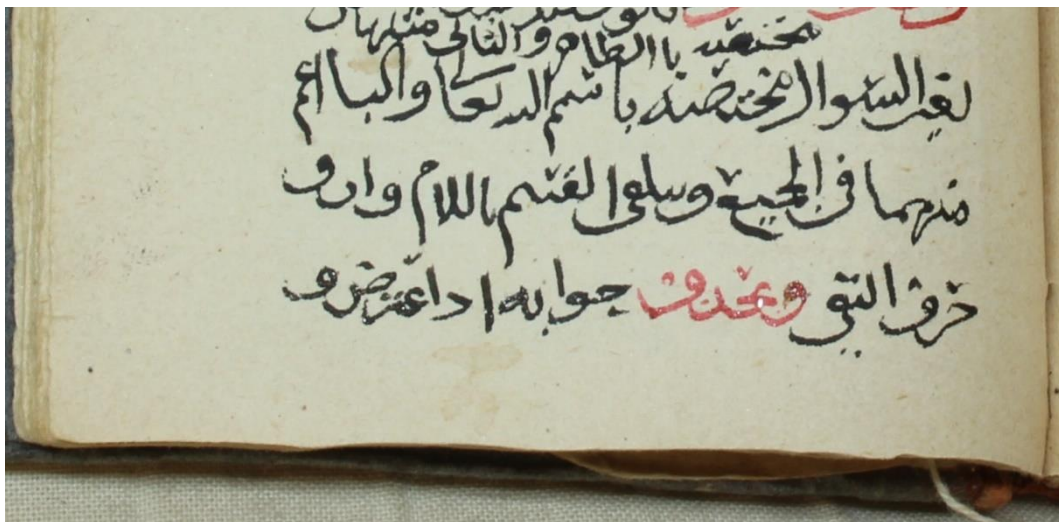 مختصه بالظاهر والتا مثلها
لغير السوال مختصه باسم الله تعا والبا اعم
منهما فى الجميع ويتلقى القسم باللام وان و
حرف النفى ويحذف جوابه اذا اعترض و